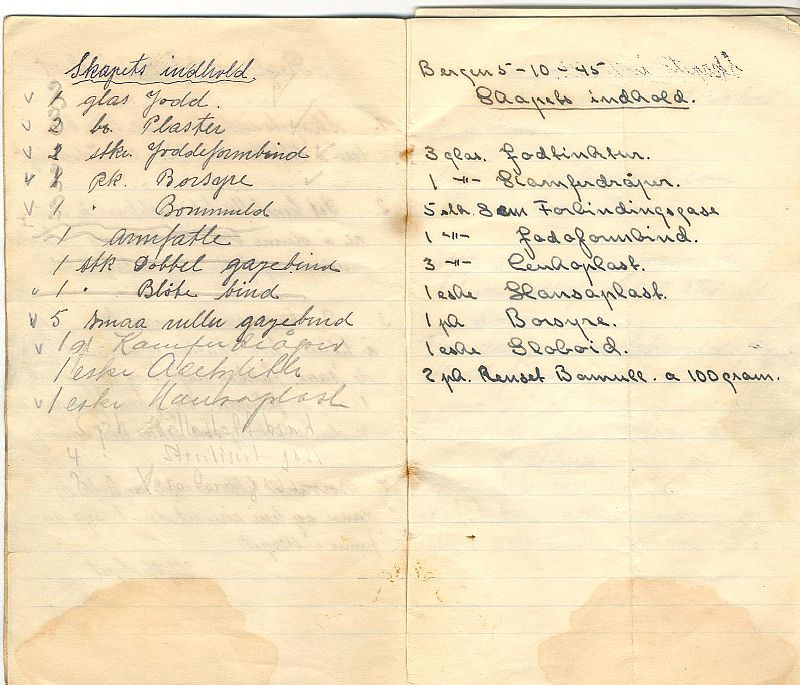 Skapets indhold.
v 1 glas Jodd.
v 2 bx. Plaster
v 2 stkr. Joddeformbind
v 1 pk. Borsyre
v 1 " Bommuld
1 Armfatle
1 stk Dobbel gazebind
v 1 " Bløte bind
v 5 smaa ruller gazebind
v 1 gl. Kamferdråper
1 eske
v 1 eske Hansaplast
Bergen 5-10-45
Skapets indhold.
3 glas. Jodtinktur.
1 -"- Kamferdråper.
5 stk. 8 cm Forbindingsgase
1 -"- Jodoformbind.
3 -"- Leukoplast.
1 eske Hansaplast.
1 pk Borsyre.
1 eske Globoid.
2 pk. Renset Bomull. a 100 gram.